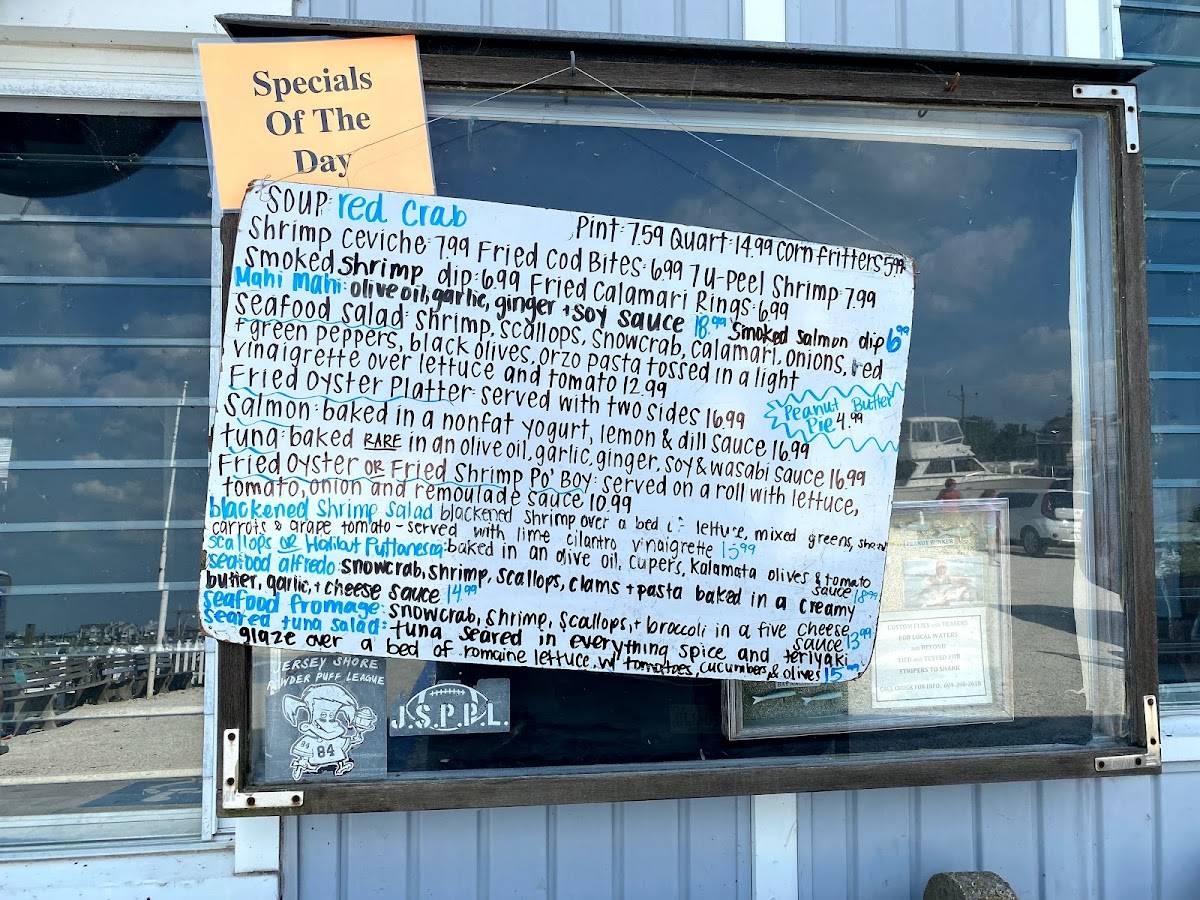 Specials
Of The
Day
SOUP: red crab Pint: 7.59 Quart: 14.99 corn fritters 5.99
Shrimp Ceviche: 7.99 Fried Cod Bites: 6.99 7 u-peel Shrimp: 7.99
Smoked shrimp dip: 6.99 Fried Calamari Rings: 6.99
Mahi Mahi: olive oil, garlic, ginger + soy sauce 18.99 Smoked salmon dip 6.99
Seafood salad: shrimp, scallops, snowcrab, calamari, onions, red
+ green peppers, black olives, orzo pasta tossed in a light
vinaigrette over lettuce and tomato 12.99
Peanut Butter
Pie 4.99
Fried Oyster Platter: served with two sides 16.99
Salmon: baked in a nonfat yogurt, lemon & dill sauce 16.99
tuna: baked RARE in an olive oil, garlic, ginger, soy & wasabi sauce 16.99
Fried Oyster OR Fried Shrimp Po' Boy: served on a roll with lettuce,
tomato, onion and remoulade sauce 10.99
blackened Shrimp Salad blackened shrimp over a bed of lettuce, mixed greens,
carrots & grape tomato - served with lime cilantro vinaigrette 15.99
scallops OR Halibut Puttanesca: baked in an olive oil, capers, kalamata olives & tomato
sauce 18.99
seafood alfredo: snowcrab, shrimp, scallops, clams + pasta baked in a creamy
butter, garlic, + cheese sauce 14.99
seafood fromage: snowcrab, shrimp, scallops, + broccoli in a five cheese
sauce 13.99
seared tuna salad: tuna seared in everything spice and teriyaki
glaze over a bed of romaine lettuce w/ tomatoes, cucumbers, & olives 15
JERSEY SHORE
POWDER PUFF LEAGUE
84
J.S.P.P.L.
CUSTOM FLIES and TEASERS
FOR LOCAL WATERS
and BEYOND
TIED and TESTED FOR
STRIPERS TO SHARK